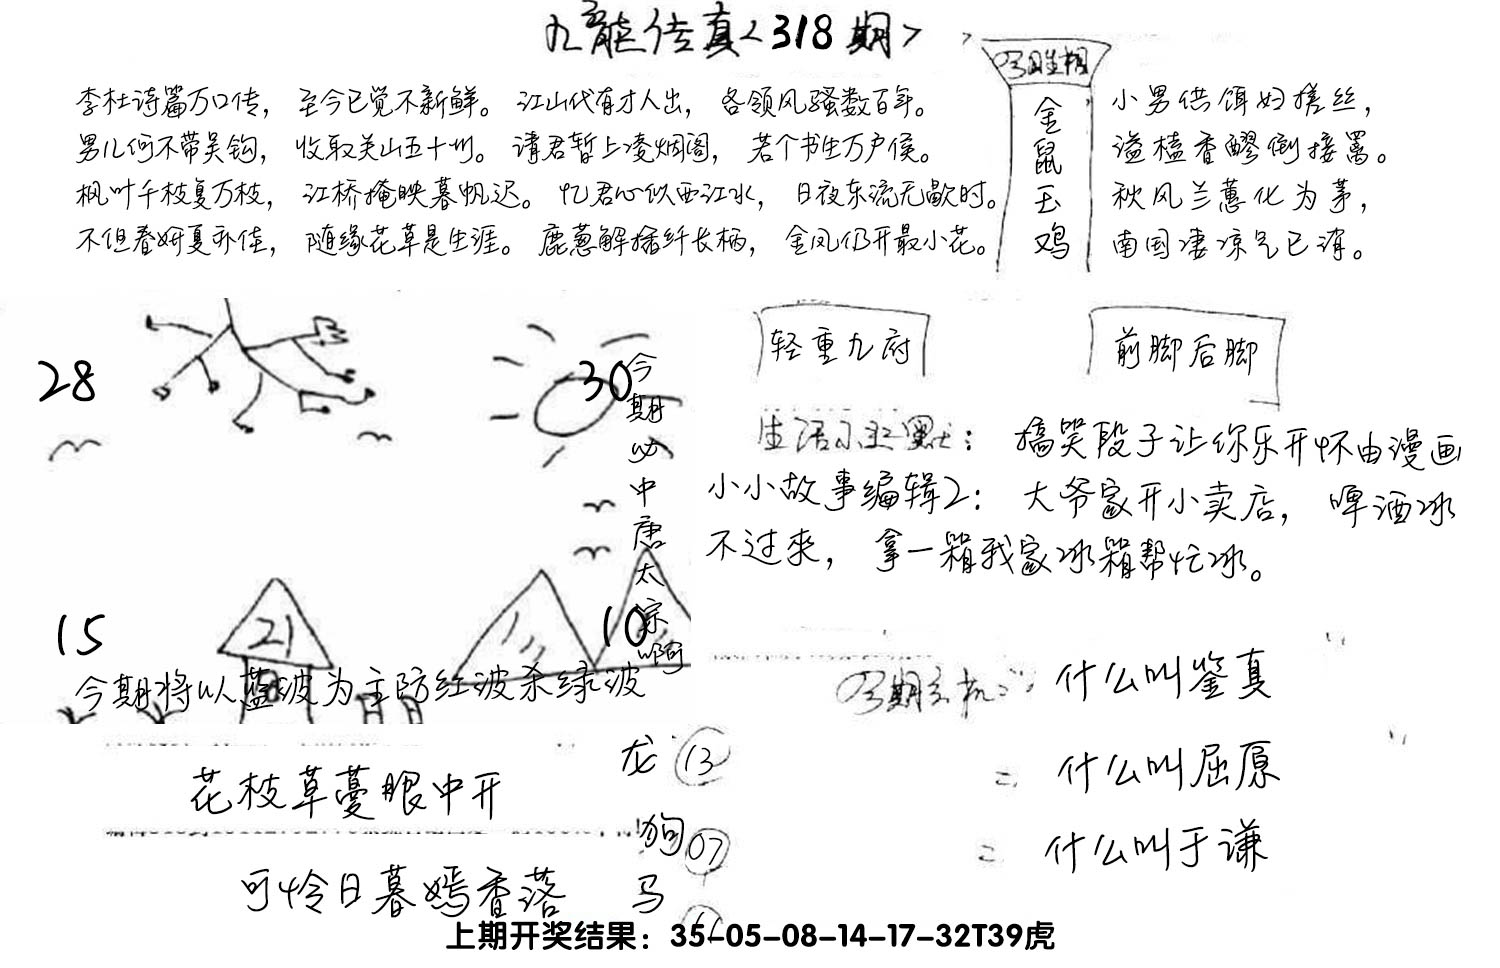 九龍传真<318期>
李杜诗篇万口传，至今已觉不新鲜。江山代有才人出，各领风骚数百年。
男儿何不带吴钩，收取关山五十州。请君暂上凌烟阁，若个书生万户侯。
枫叶千枝复万枝，江桥掩映暮帆迟。忆君心似西江水，日夜东流无歇时。
不但春妍夏亦佳，随缘花草是生涯。鹿葱解插纤长柄，金凤仍开最小花。
金鼠玉鸡
小男供饵妇搓丝，
溢榼香醪倒接罱。
秋风兰蕙化为茅，
南国凄凉气已消。
28
30
今期必中唐太宗啊
15
21
10
今期将以蓝波为主防红波杀绿波
轻重九府
前脚后脚
生活小幽默：搞笑段子让你乐开怀由漫画
小小故事编辑2：大爷家开小卖店，啤酒冰
不过来，拿一箱我家冰箱帮忙冰。
花枝草蔓眼中开
可怜日暮嫣香落
龙 13
狗 07
马
什么叫鉴真
= 什么叫屈原
= 什么叫于谦
上期开奖结果：35-05-08-14-17-32T39虎